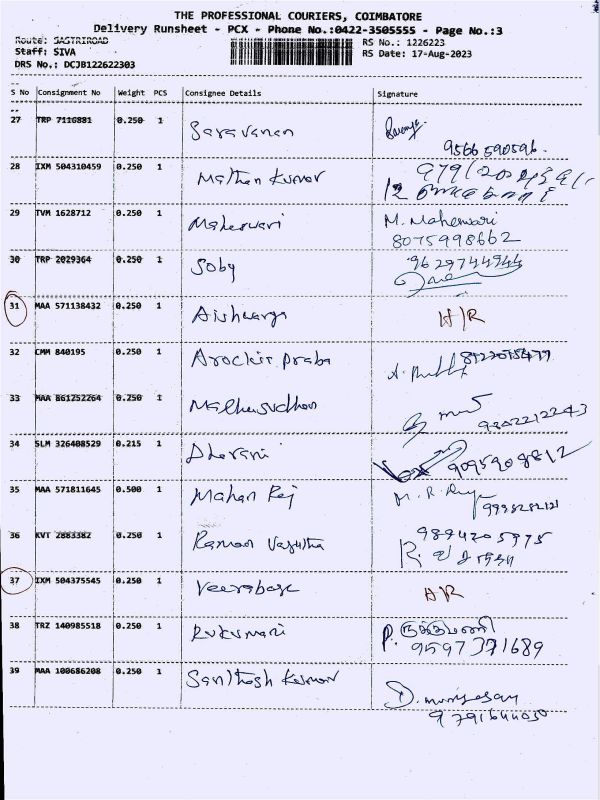 THE PROFESSIONAL COURIERS, COIMBATORE
Delivery Runsheet - PCX - Phone No.:0422-3505555 - Page No.:3
Route: SASTRIROAD
RS No.: 1226223
Staff: SIVA
RS Date: 17-Aug-2023
DRS No.: DCJB122622303
S No Consignment No Weight PCS Consignee Details Signature
27 TRP 7116881 0.250 1 Saravanan
9566590596.
28 IXM 504310459 0.250 1 Mathan Kumar
12
29 TVM 1628712 0.250 1 Maheswari M. Maheswari
8075998662
30 TRP 2029364 0.250 1 Soby 9629744944
31 MAA 571138432 0.250 1 Aishwarya H/R
32 CMM 840195 0.250 1 Arockir praba
33 MAA 861252264 0.250 1 Madhusudhan
9302212243
34 SLM 326408529 0.215 1 Dharani 9095908812
35 MAA 571811645 0.500 1 Mahan Raj M. R.
36 KVT 2883382 0.250 1 Raman 9894205975
37 IXM 504375545 0.250 1 HR
38 TRZ 140985518 0.250 1 Rukumani P. ருக்குமணி
9597371689
39 MAA 100686208 0.250 1 Santhosh Kumar
D. murugesan